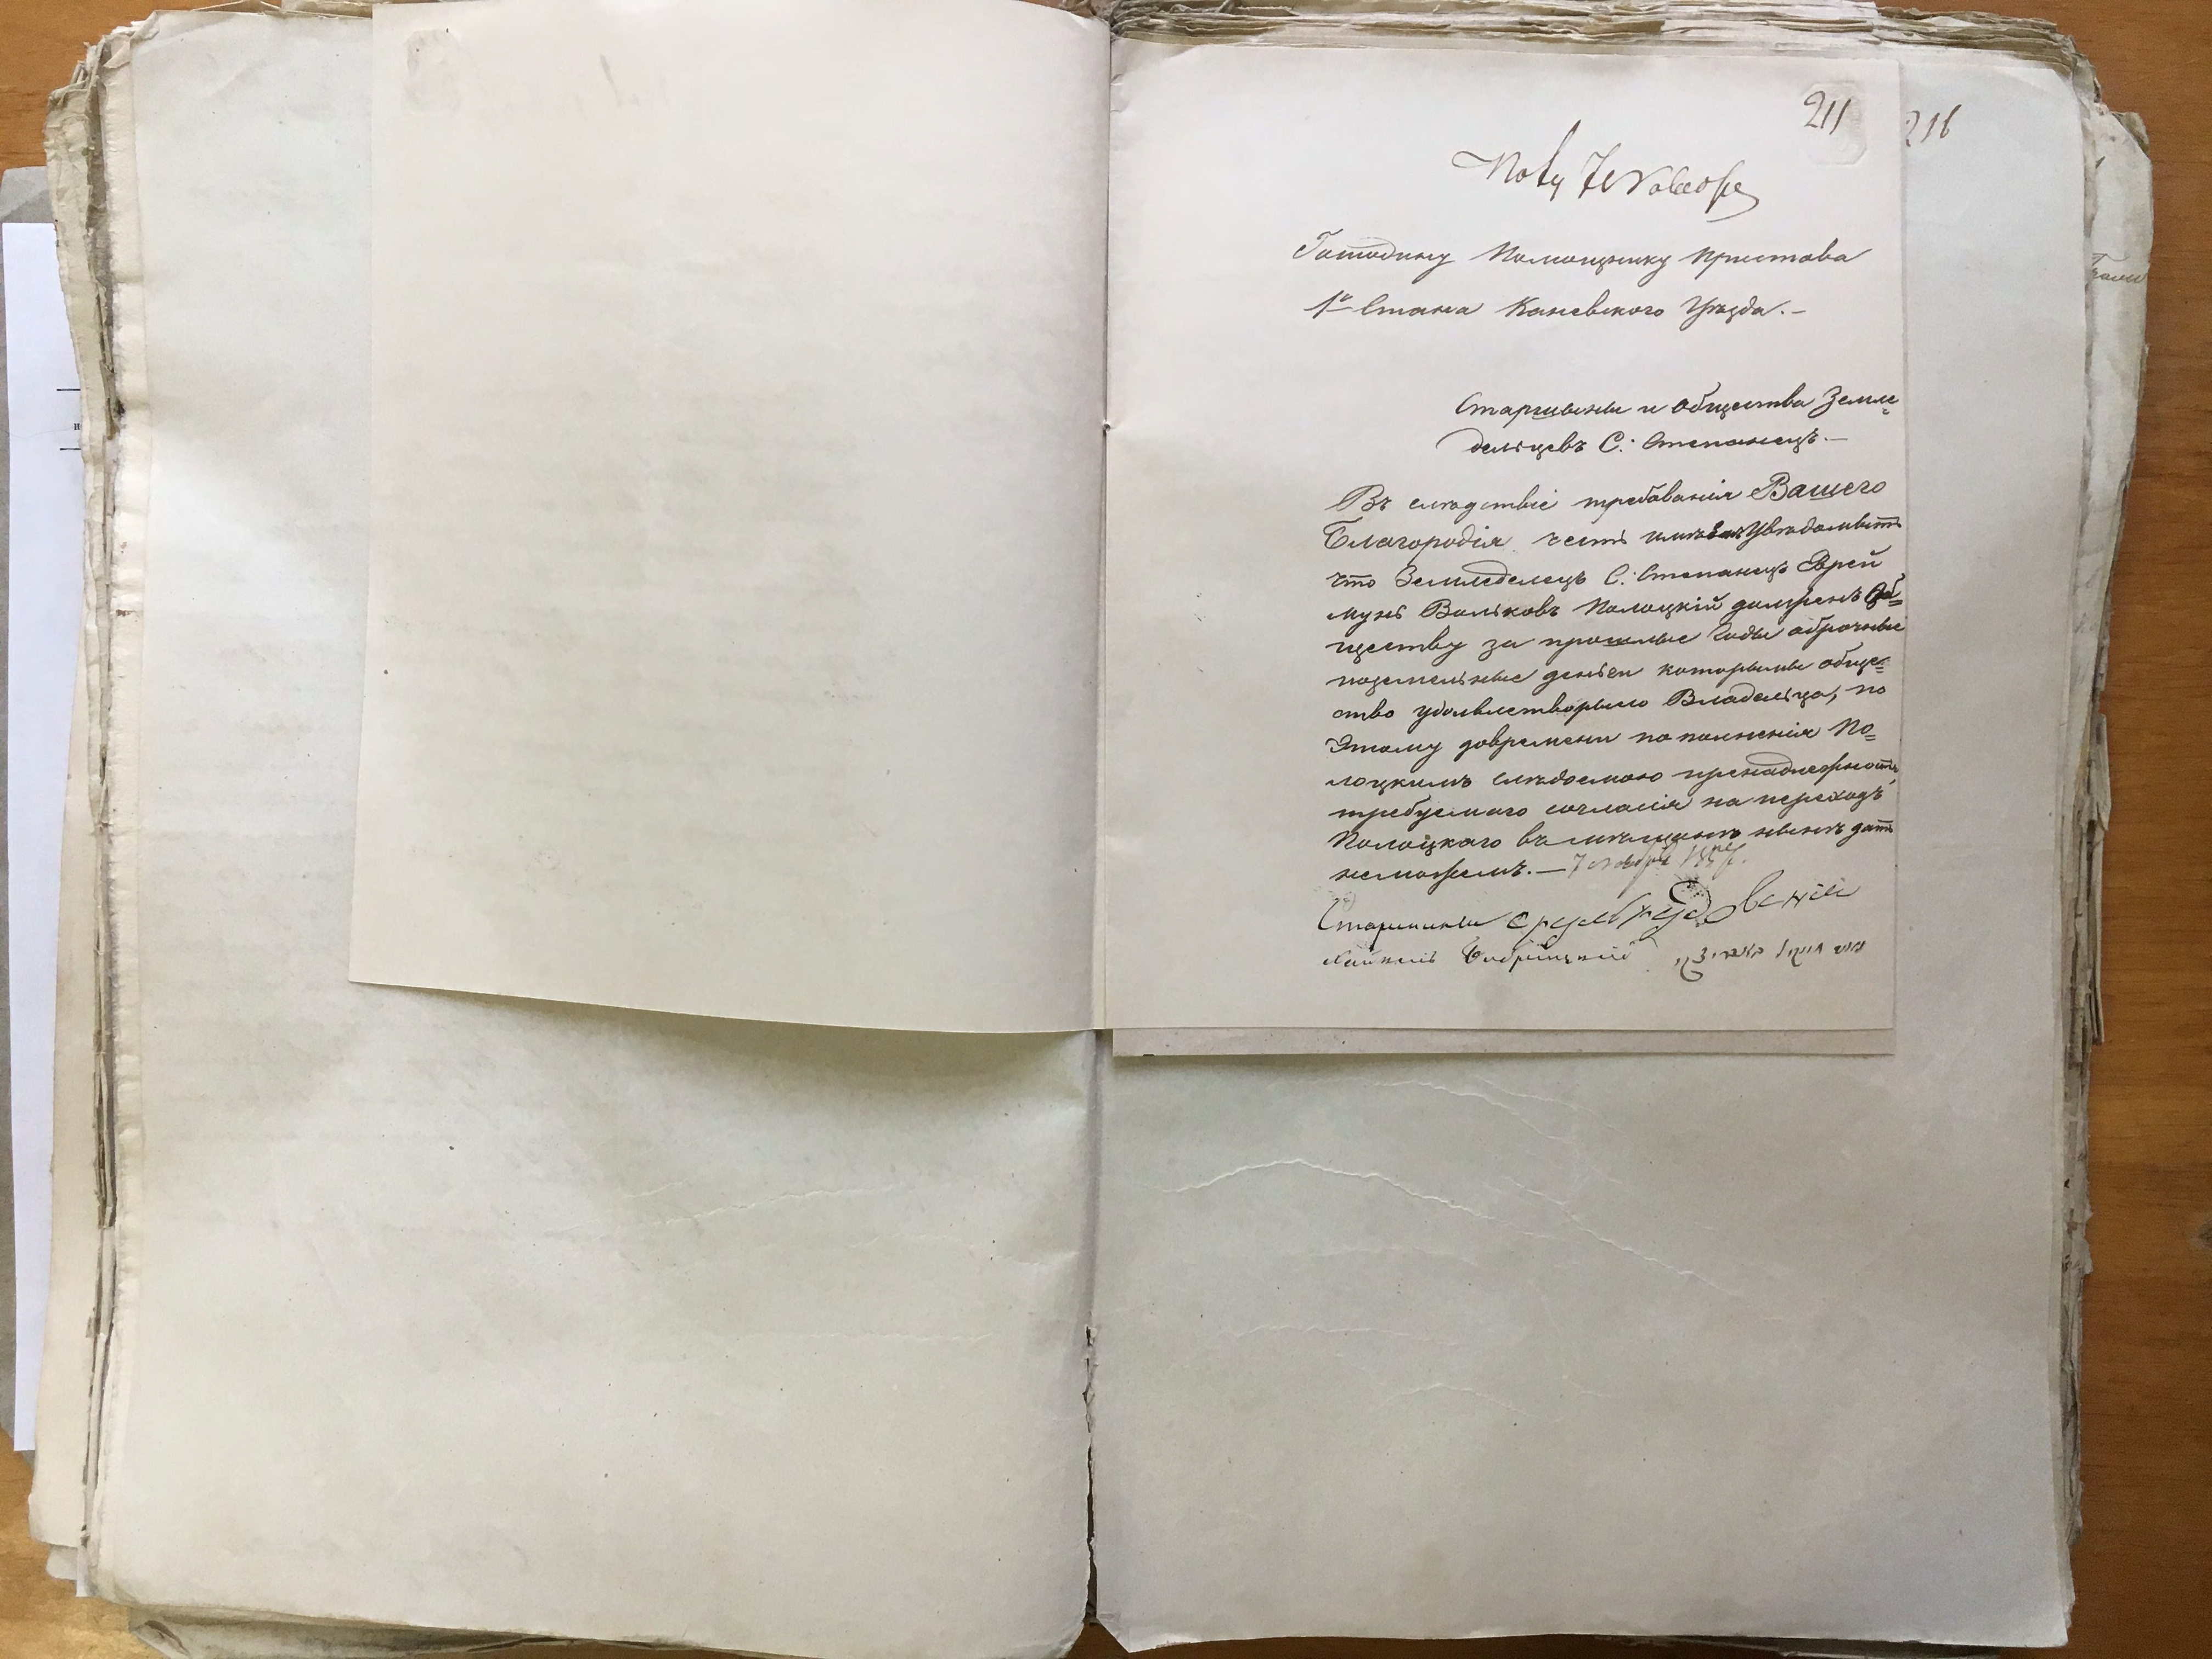 211
216
Пол. 7 Ноября
Господину Помощнику Пристава
1го Стана Каневского Уѣзда.-
Старшины и общества Земле=
дельцевъ С: Степанецъ.-
Въ слѣдствіе требованія Вашего
Благородія честь имѣемъ Увѣдомить
что Земледелецъ С: Степанецъ Еврей
Мунь Вольковъ Полоцкій долженъ Об=
ществу за прошлые Годы оброчные
поземельные деньги которыми обще=
ство удовлетворило Владельца, по
Этому довремени пополненія По=
лоцкимъ слѣдоемою
требуемаго согласія на переходъ
Полоцкаго въ мѣщане дать
неможемъ.— 7 ноября
Старшины